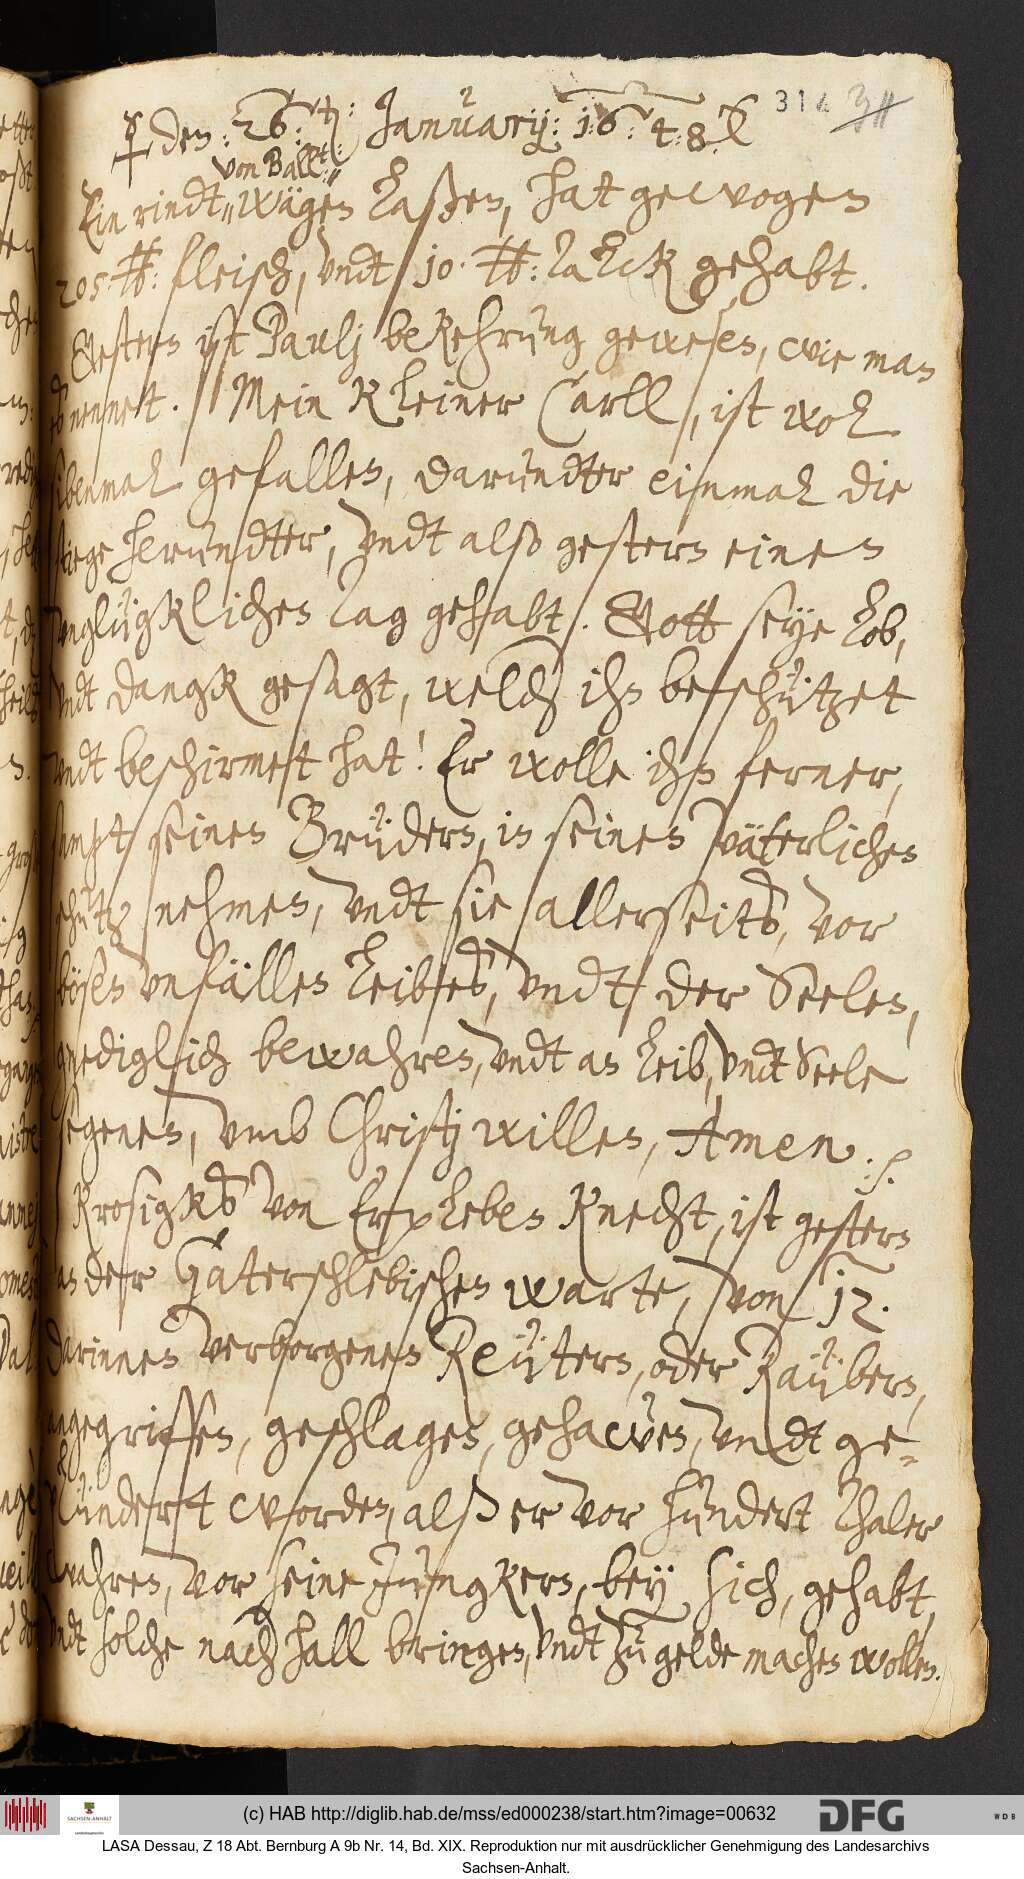 314
☿ den: 26. t: January: 1648.
von Ballst:
Ein rindt, wägen laßen, hat gewogen
205 ℔: fleisch, undt 10. ℔: Talck gehabt.
Gestern ist Paulj bekehrung gewesen, wie man
es nennet. Mein kleiner Carll, ist wol
sibenmal gefallen, darundter einmal die
stiege herundter, undt also gestern einen
unglügklichen tag gehabt. Gott seye lob,
undt dangk gesagt, welcher ihn beschützet
undt beschirmet hat! Er wolle ihn ferner,
sampt seinen Brüdern, in seinen väterlichen
schutz nehmen, undt sie allerseits, vor
bösen unfällen leibes, undt der Seelen,
gnediglich bewahren, undt an leib, undt Seele
segenen, umb Christj willen, Amen.
Krosigks von Erxleben Knecht, ist gestern
an der Gaterschlebischen warte, von 12.
darinnen verborgenen Reütern, oder Raübern,
angegriffen, geschlagen, gehawen, undt ge-
plündert worden, alß er vor hundert Thaler
wahren, vor seine Jungkern, bey sich, gehabt,
undt solche nach hall bringen, undt zu gelde machen wollen.
(c) HAB http://diglib.hab.de/mss/ed000238/start.htm?image=00632
SACHSEN-ANHALT
DFG
WDB
LASA Dessau, Z 18 Abt. Bernburg A 9b Nr. 14, Bd. XIX. Reproduktion nur mit ausdrücklicher Genehmigung des Landesarchivs
Sachsen-Anhalt.